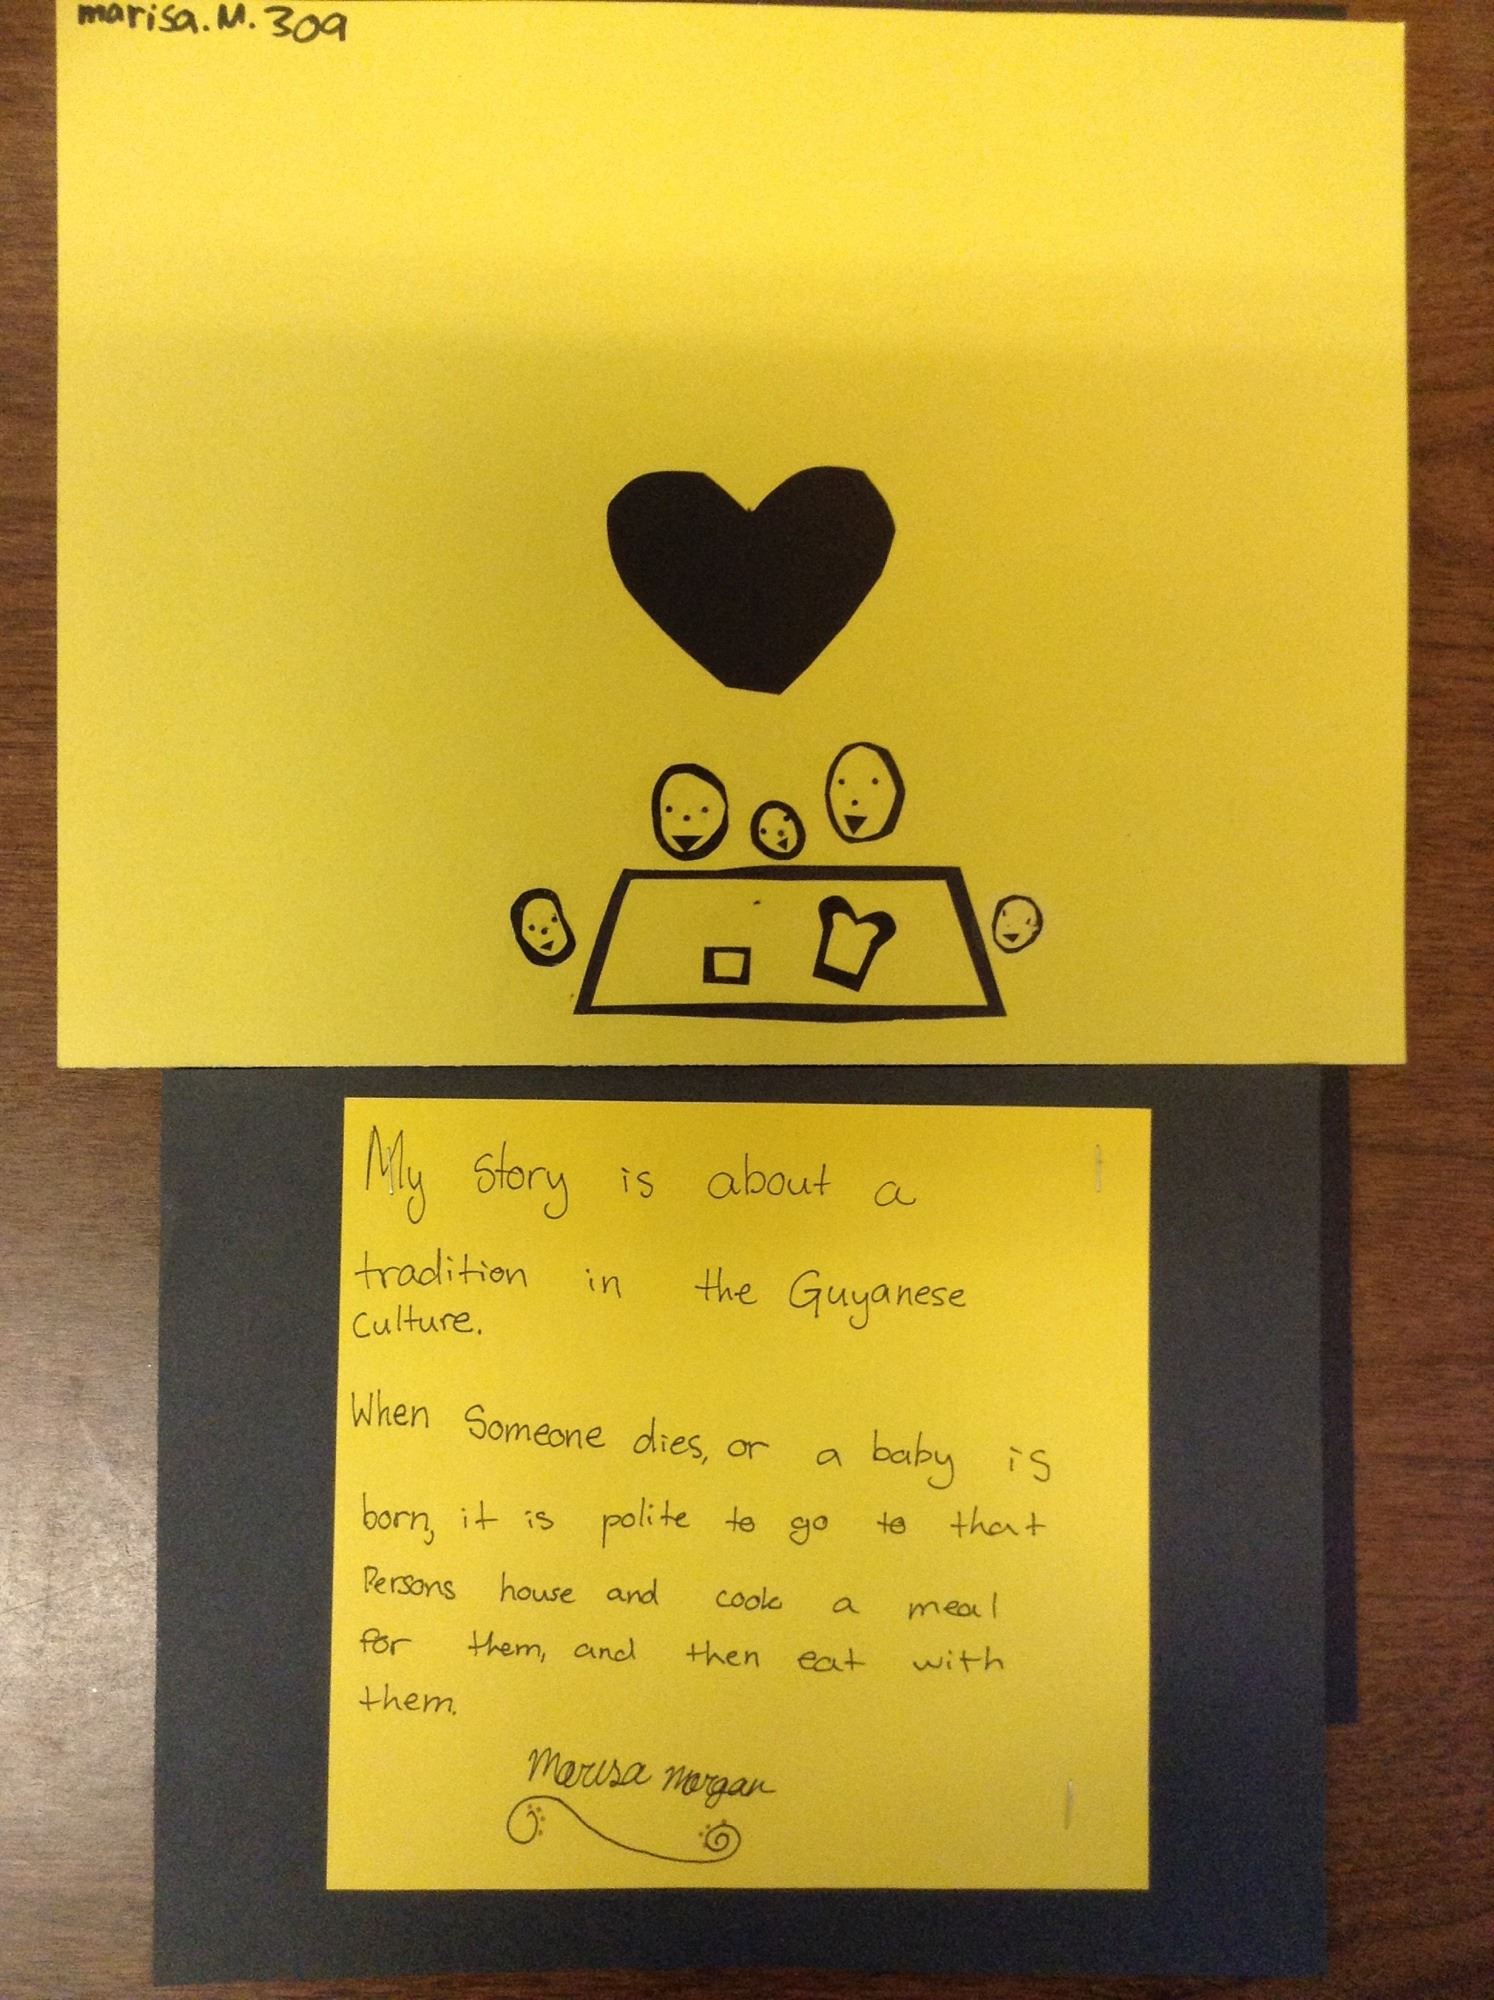 marisa.M.309
My story is about a
tradition in the Guyanese
culture.
When Someone dies, or a baby is
born, it is polite to go to that
Persons house and cook a meal
for them, and then eat with
them.
Marisa Morgan